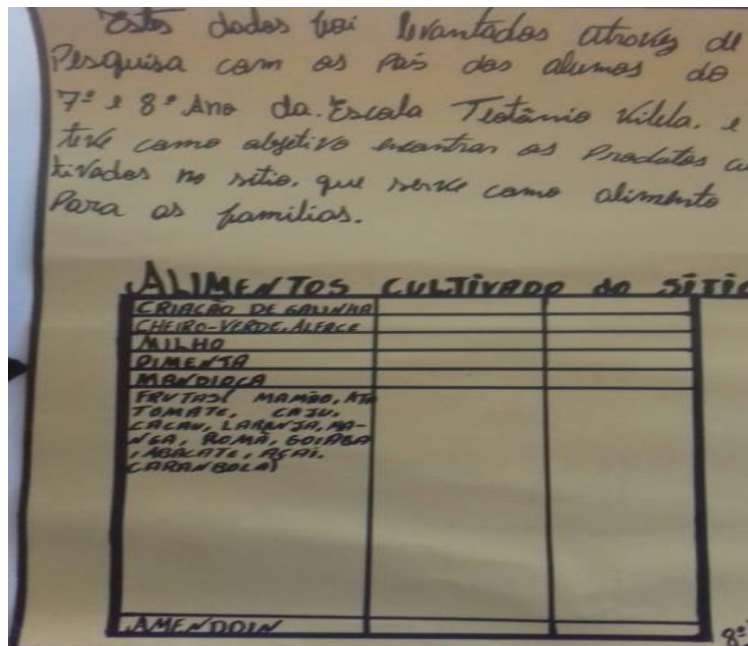 Estes dados foi levantados através de
Pesquisa com os Pais dos alumos do
7º e 8º Ano da. Escola Teotânio Vilela. e
teve como objetivo encontrar os Produtos cu
tivados no sítio. que serve como alimento
Para as famílias.
ALIMENTOS CULTIVADO do SÍTIO
CRIAÇÃO DE GALINHA
CHEIRO-VERDE, ALFACE
MILHO
PIMENTA
MANDIOCA
FRUTAS( MAMÃO, ATA
TOMATE, CAJU,
CACAU, LARANJA, MA-
NGA, ROMÃ, GOIABA
, ABACATE, AÇAI.
CARANBOLA)
AMENDOIN
8º